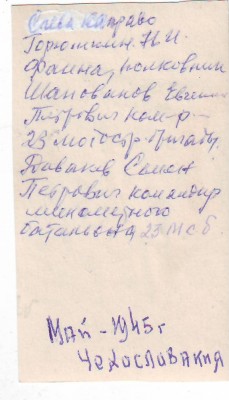 Слева направо
Горюшкин Н.И.
Фаина, полковник
Шаповалов Евгений
Петрович ком-р
23 мотостр. бригады.
Семен
Петрович командир
минометного
батальона 23 МСб.
Май - 1945 г
Чехословакия